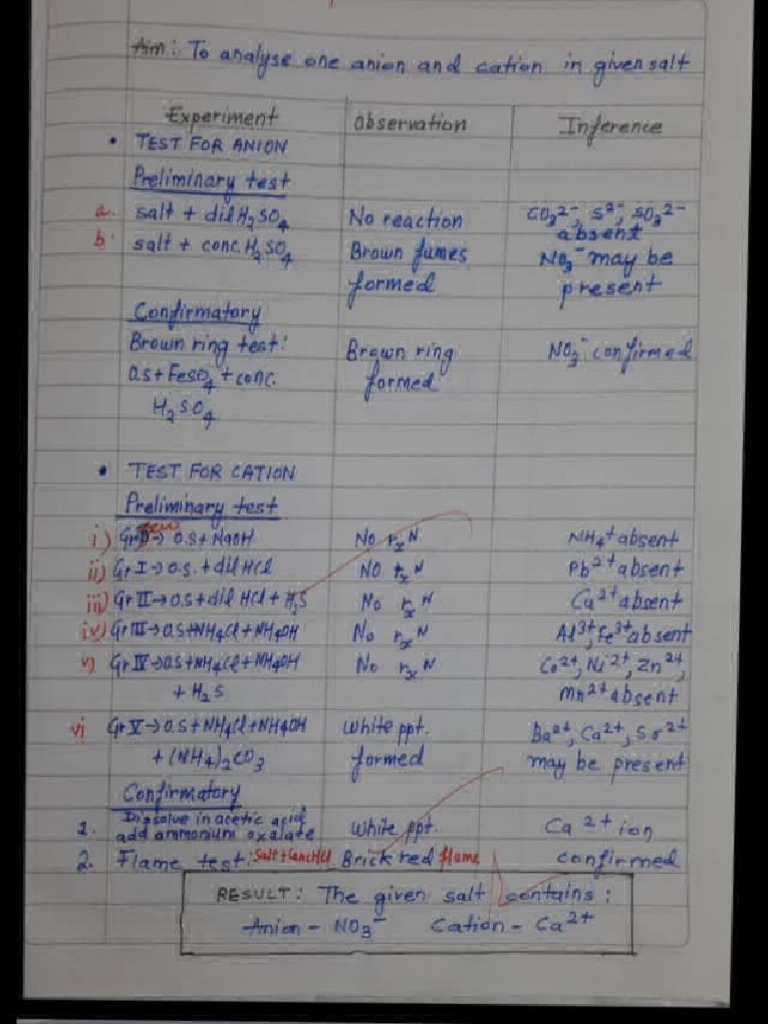 Aim: To analyse one anion and cation in given salt
Experiment Observation Inference
• TEST FOR ANION
Preliminary test
a. salt + dil H₂SO₄ No reaction CO₃²⁻, S²⁻, SO₃²⁻
absent
b. salt + conc. H₂SO₄ Brown fumes NO₃⁻ may be
formed present
Confirmatory
Brown ring test: Brown ring NO₃⁻ confirmed
O.S + FeSO₄ + conc. formed
H₂SO₄
• TEST FOR CATION
Preliminary test
i) Gr zero → O.S + NaOH No rxN NH₄⁺ absent
ii) Gr I → O.S. + dil HCl NO rxN Pb²⁺ absent
iii) Gr II → O.S + dil HCl + H₂S No rxN Cu²⁺ absent
iv) Gr III → O.S + NH₄Cl + NH₄OH No rxN Al³⁺, Fe³⁺ absent
v) Gr IV → O.S + NH₄Cl + NH₄OH No rxN Co²⁺, Ni²⁺, Zn²⁺,
+ H₂S Mn²⁺ absent
vi Gr V → O.S + NH₄Cl + NH₄OH white ppt. Ba²⁺, Ca²⁺, Sr²⁺
+ (NH₄)₂CO₃ formed may be present
Confirmatory
1. Dissolve in acetic acid
add ammonium oxalate white ppt. Ca²⁺ ion
2. Flame test: Salt + Conc HCl Brick red flame confirmed
RESULT: The given salt contains:
Anion - NO₃⁻ Cation - Ca²⁺